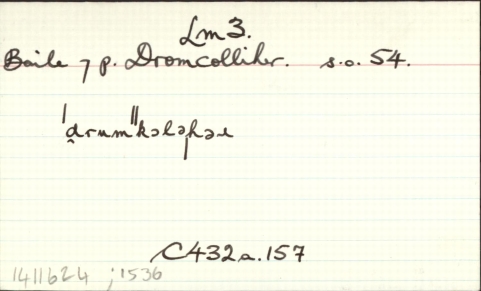 Lm 3.
Baile ⁊ p. Dromcolliher. s.o. 54.
ˈd̪rumˈˈkɔləhər
C432a.157
1411624 ; 1536